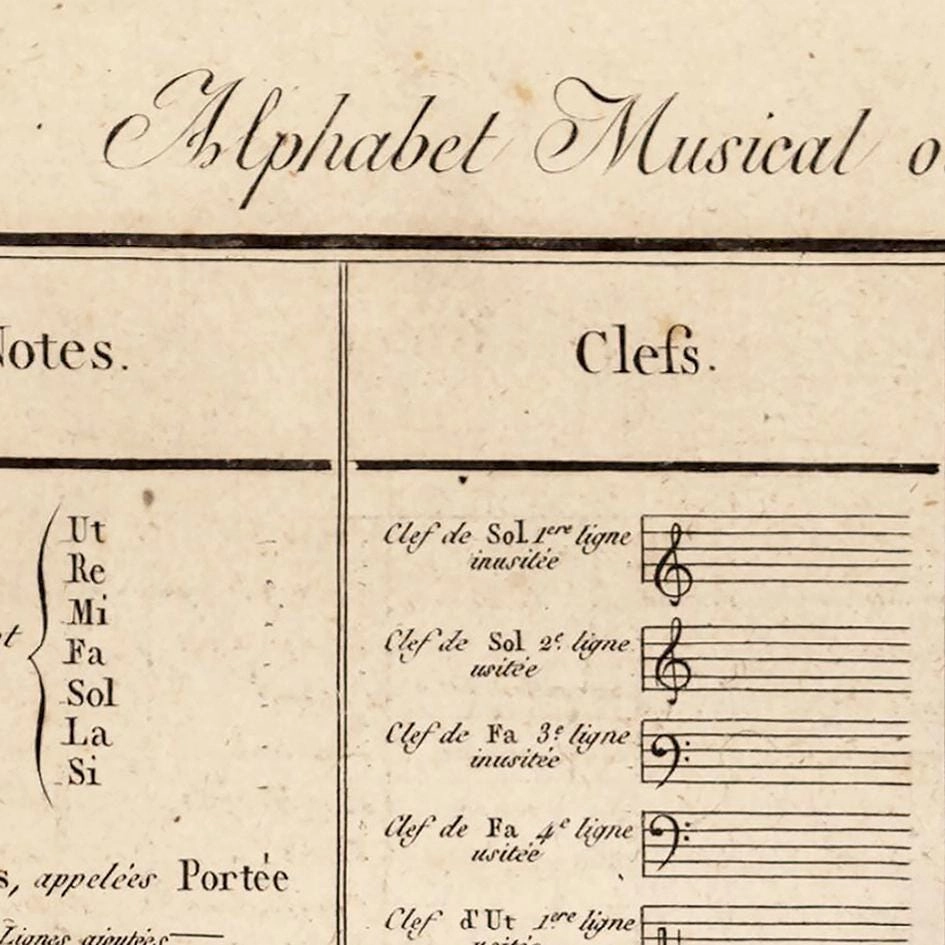 Alphabet Musical
Notes.
Clefs.
Ut
Re
Mi
Fa
Sol
La
Si
appelées Portée
Lignes ajoutées
Clef de Sol 1ere ligne
inusitée
Clef de Sol 2e. ligne
usitée
Clef de Fa 3e ligne
inusitée
Clef de Fa 4e ligne
usitée
Clef d'Ut 1ere ligne